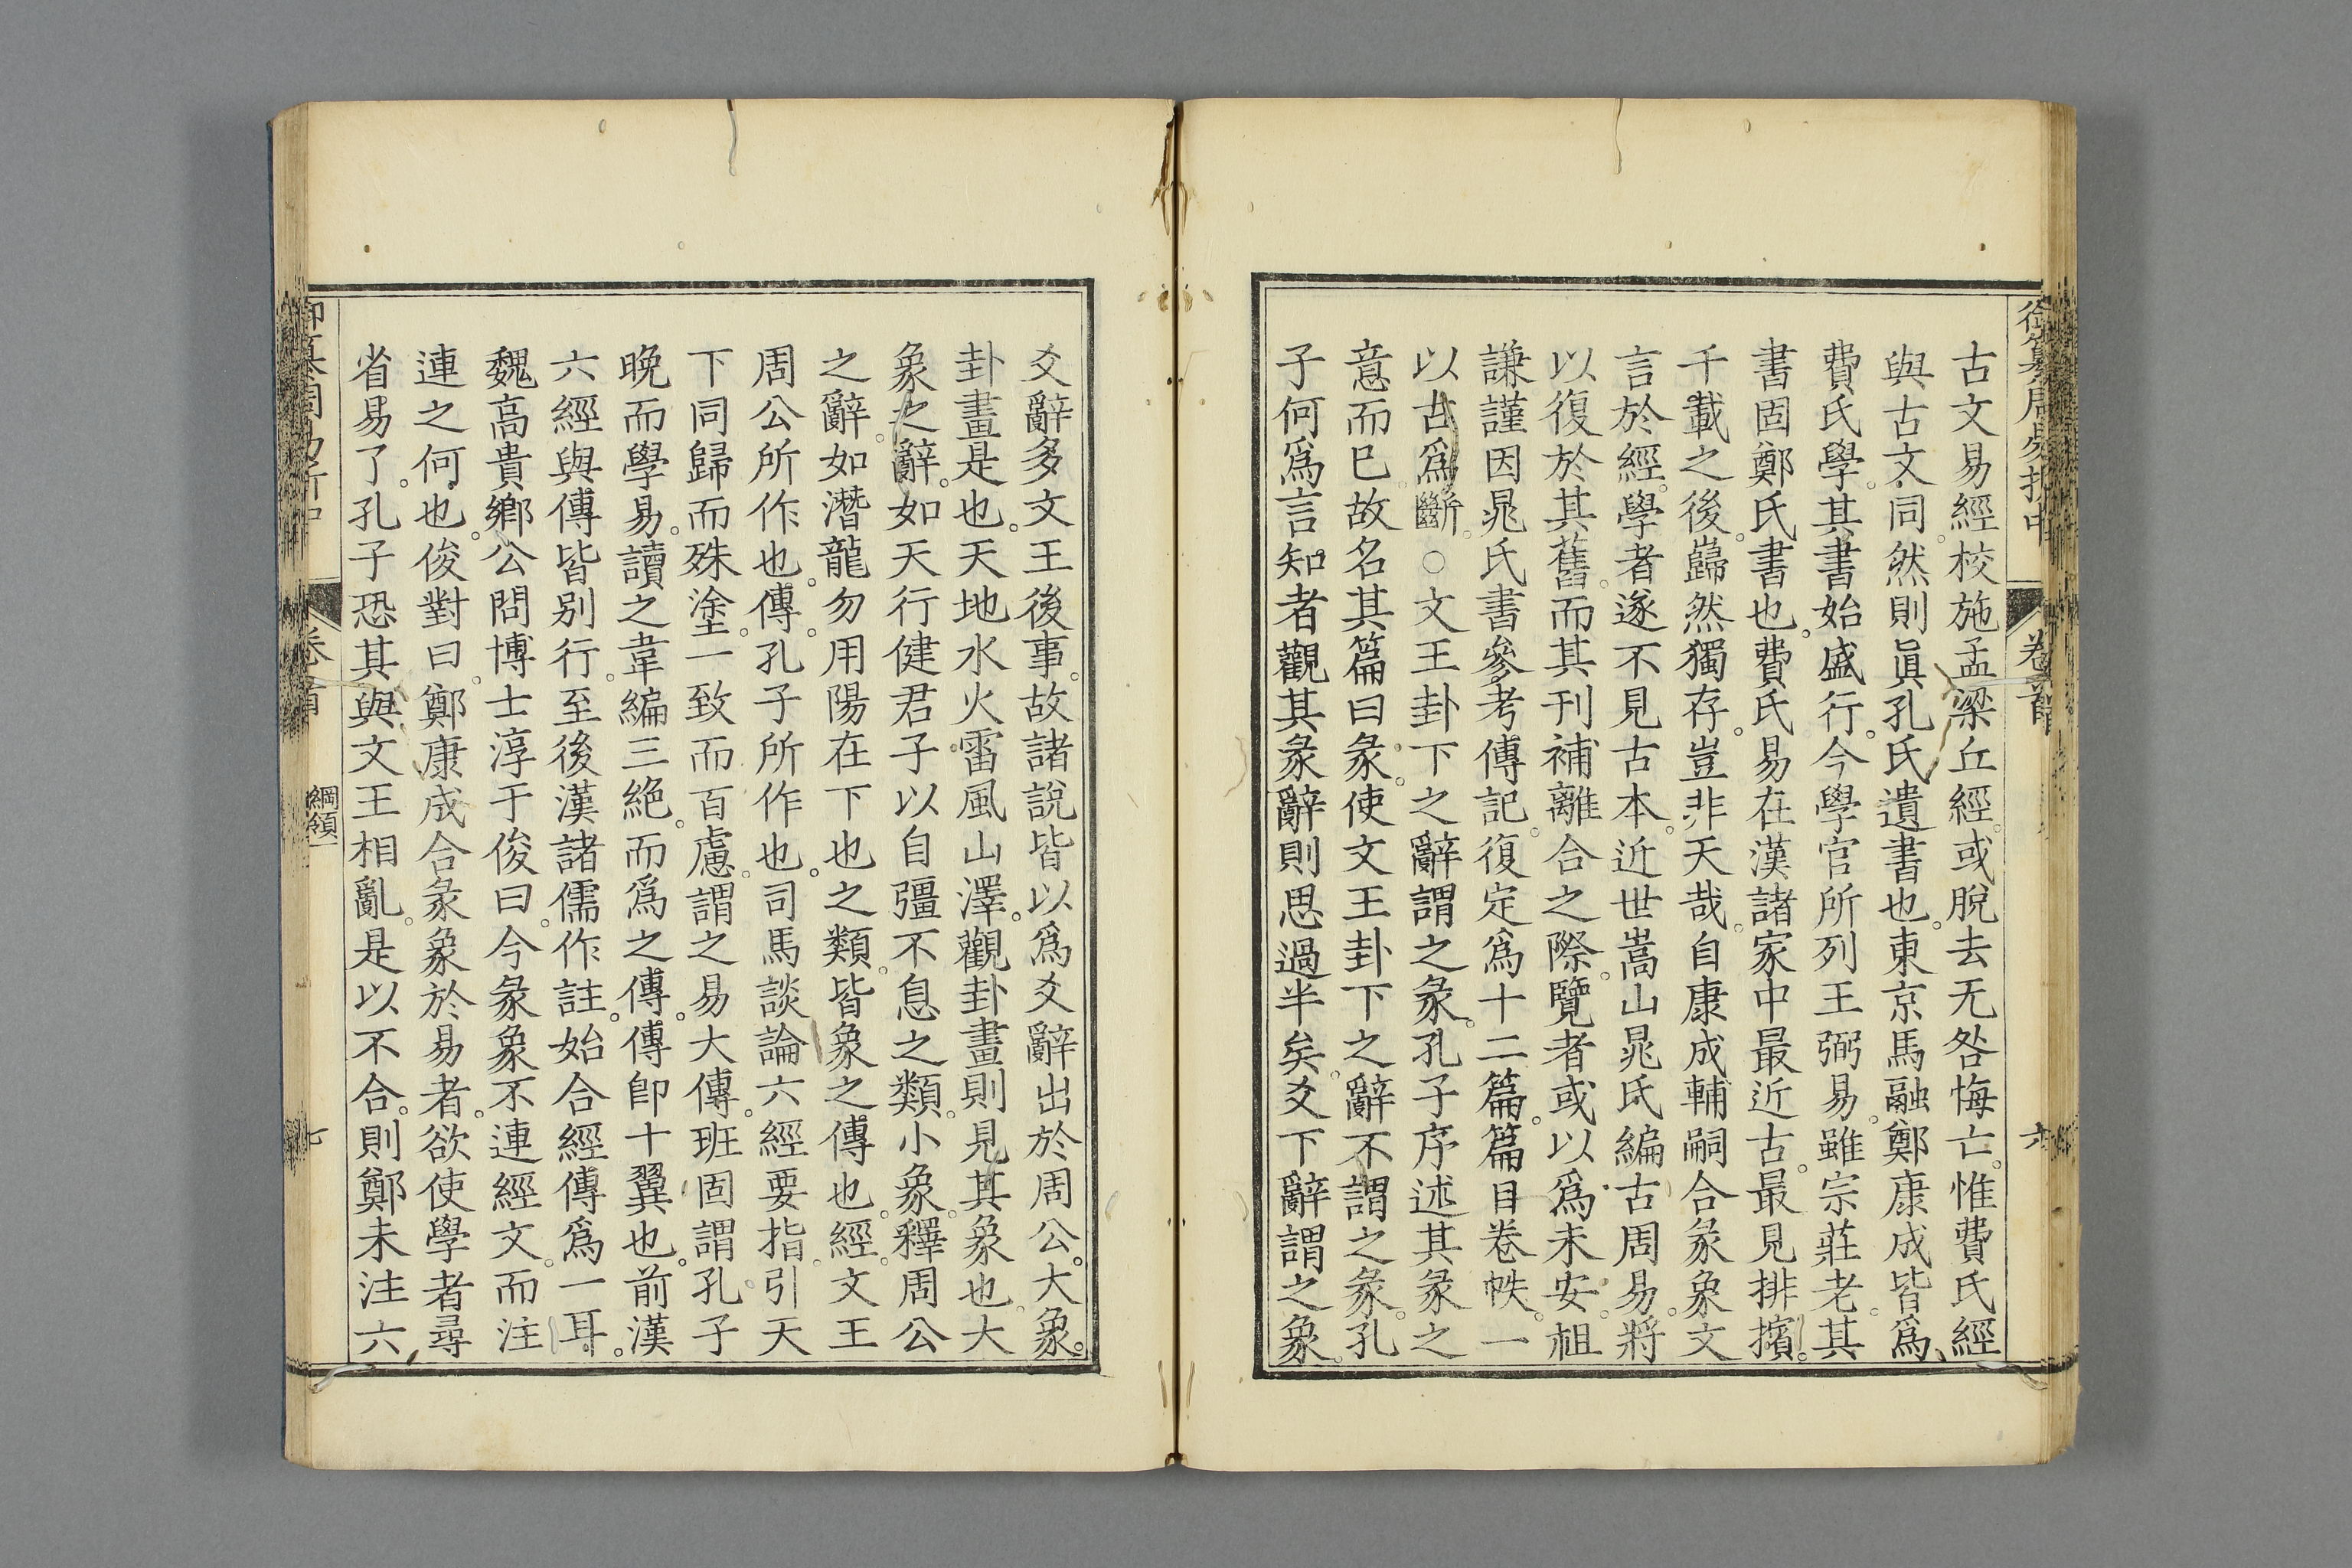 古文易經校施孟梁丘經。或脫去无咎悔亡。惟費氏經
與古文同。然則眞孔氏遺書也。東京馬融鄭康成皆爲
費氏學。其書始盛行。今學官所列王弼易。雖宗莊老。其
書固鄭氏書也。費氏易在漢諸家中最近古。最見排擯。
千載之後。巋然獨存。豈非天哉。自康成輔嗣合彖象文
言於經。學者遂不見古本。近世嵩山晁氏編古周易。將
以復於其舊。而其刊補離合之際。覽者或以爲未安。祖
謙謹因晁氏書參考傳記。復定爲十二篇。篇目卷帙。一
以古爲斷。○文王卦下之辭謂之彖。孔子序述其彖之
意而已。故名其篇曰彖。使文王卦下之辭不謂之彖。孔
子何爲言知者觀其彖辭則思過半矣。爻下辭謂之象。
卷首
六
爻辭多文王後事。故諸說皆以爲爻辭出於周公。大象。
卦畫是也。天地水火雷風山澤。觀卦畫則見其象也。大
象之辭。如天行健君子以自彊不息之類。小象。釋周公
之辭。如潛龍勿用陽在下也之類。皆象之傳也。經。文王
周公所作也。傳。孔子所作也。司馬談論六經要指。引天
下同歸而殊塗。一致而百慮。謂之易大傳。班固謂孔子
晚而學易。讀之韋編三絕。而爲之傳。傳卽十翼也。前漢
六經與傳皆別行。至後漢諸儒作註。始合經傳爲一耳。
魏高貴鄉公問博士淳于俊曰。今彖象不連經文。而注
連之何也。俊對曰。鄭康成合彖象於易者。欲使學者尋
省易了。孔子恐其與文王相亂。是以不合。則鄭未注六
卷首
綱領一
七